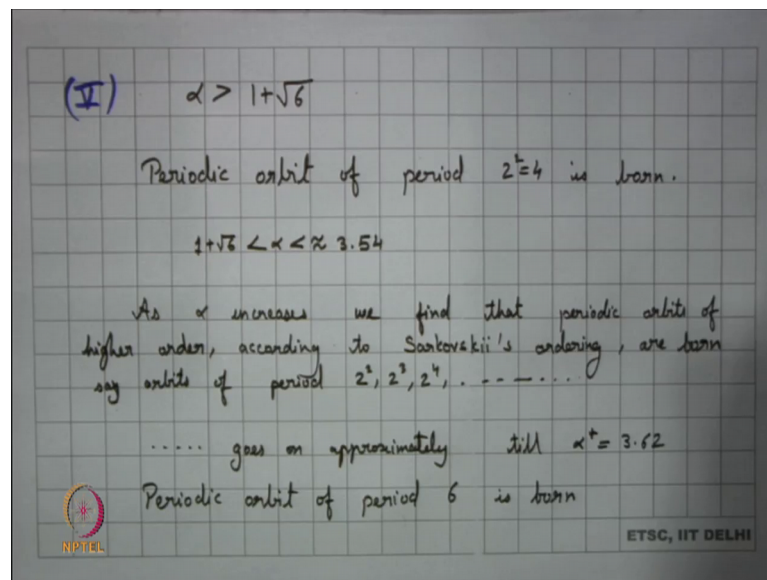 (V) α > 1+√6
Periodic orbit of period 2²=4 is born.
1+√6 < α < ≈ 3.54
As α increases we find that periodic orbits of
higher order, according to Sarkovskii's ordering, are born
say orbits of period 2², 2³, 2⁴, . - - — . . . .
. . . . . goes on approximately till α* = 3.62
Periodic orbit of period 6 is born
NPTEL
ETSC, IIT DELHI